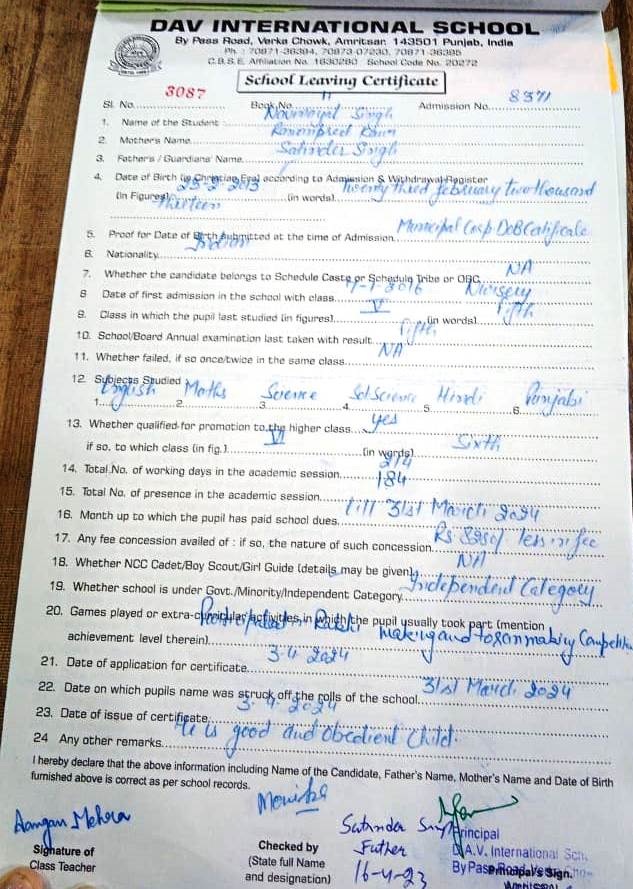 DAV INTERNATIONAL SCHOOL
By Pass Road, Verka Chowk, Amritsar. 143501 Punjab, India
Ph. : 70871-36384, 70873-07230, 70871-36385
C.B.S.E. Affiliation No. 1630280 School Code No. 20272
School Leaving Certificate
Sl. No. 3087 Book No. 11 Admission No. 8371
1. Name of the Student : Singh
2. Mother's Name Kaur
3. Father's / Guardians' Name Satinder Singh
4. Date of Birth (in Christian Era) according to Admission & Withdrawal Register
(in Figures) 23-2-2013 (in words) Twenty third february two thousand
Thirteen
5. Proof for Date of Birth submitted at the time of Admission Municipal Corp DoB Certificate
6. Nationality Indian
7. Whether the candidate belongs to Schedule Caste or Schedule Tribe or OBC NA
8 Date of first admission in the school with class 2016 Nursery
9. Class in which the pupil last studied (in figures) V (in words) Fifth
10. School/Board Annual examination last taken with result fifth
11. Whether failed, if so once/twice in the same class NA
12. Subjects Studied
1. English 2. Maths 3. Science 4. Sst Science 5. Hindi 6. Punjabi
13. Whether qualified for promotion to the higher class yes
if so, to which class (in fig.) VI (in words) Sixth
14. Total No. of working days in the academic session 214
15. Total No. of presence in the academic session 184
16. Month up to which the pupil has paid school dues till 31st March 2024
17. Any fee concession availed of : if so, the nature of such concession Rs less in fee
18. Whether NCC Cadet/Boy Scout/Girl Guide (details may be given) NA
19. Whether school is under Govt./Minority/Independent Category Independent Category
20. Games played or extra-curricular activities in which the pupil usually took part (mention
achievement level therein) in Rakhi making and making Competition
21. Date of application for certificate 3-4-2024
22. Date on which pupils name was struck off the rolls of the school 31st March 2024
23. Date of issue of certificate 3-4-2024
24 Any other remarks He is good and obedient Child.
I hereby declare that the above information including Name of the Candidate, Father's Name, Mother's Name and Date of Birth
furnished above is correct as per school records.
Aangan Mehra
Signature of
Class Teacher
Monika
Checked by
(State full Name
and designation)
Satinder Singh
Father
16-4-23
Principal
D.A.V. International Sch.
By Pass Road, Verka
Principal's Sign.